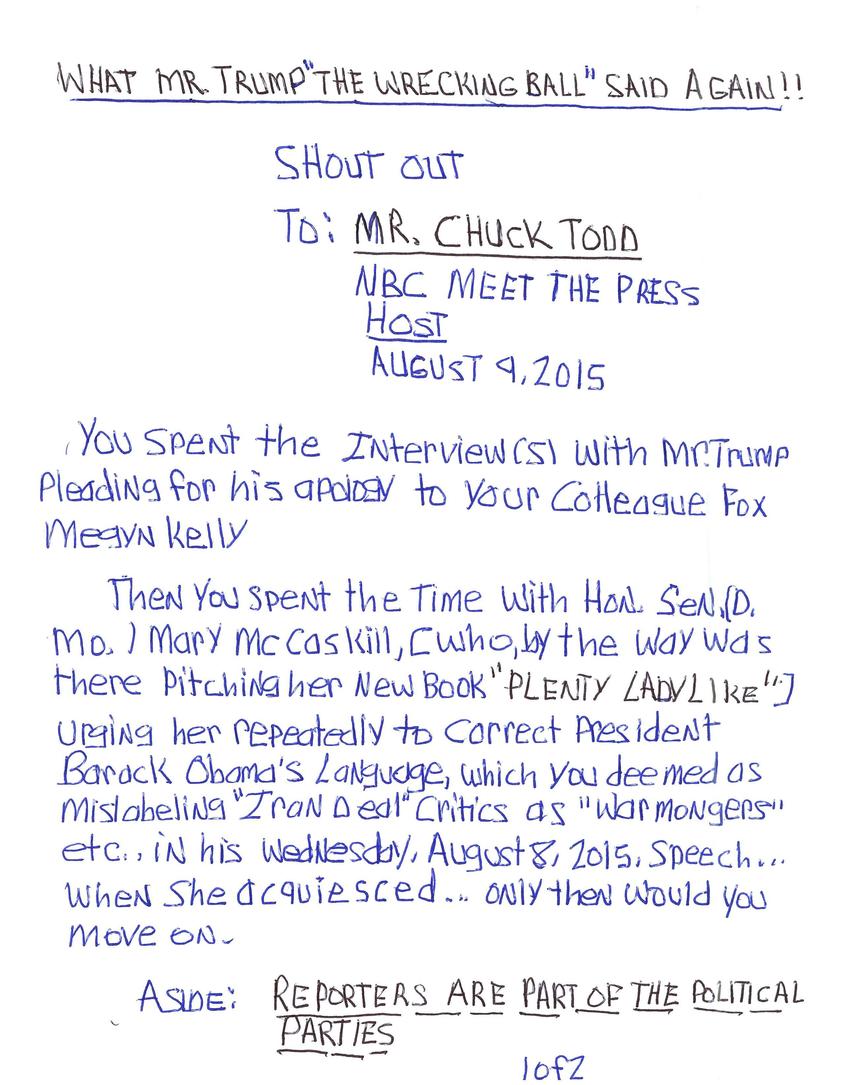 WHAT MR. TRUMP "THE WRECKING BALL" SAID AGAIN!!
SHOUT OUT
TO: MR. CHUCK TODD
NBC MEET THE PRESS
HOST
AUGUST 9, 2015
You spent the Interview(s) with Mr. Trump
Pleading for his apology to your Colleague Fox
Megyn Kelly
Then You spent the Time With Hon. Sen. (D.
Mo.) Mary McCaskill, [who, by the way was
there Pitching her New Book "PLENTY LADYLIKE".]
Urging her repeatedly to Correct President
Barack Obama's Language, which you deemed as
Mislabeling "Iran Deal" Critics as "War mongers"
etc., in his Wednesday, August 8, 2015, Speech...
When She acquiesced... only then would you
move on.
ASIDE: REPORTERS ARE PART OF THE POLITICAL
PARTIES
1 of 2